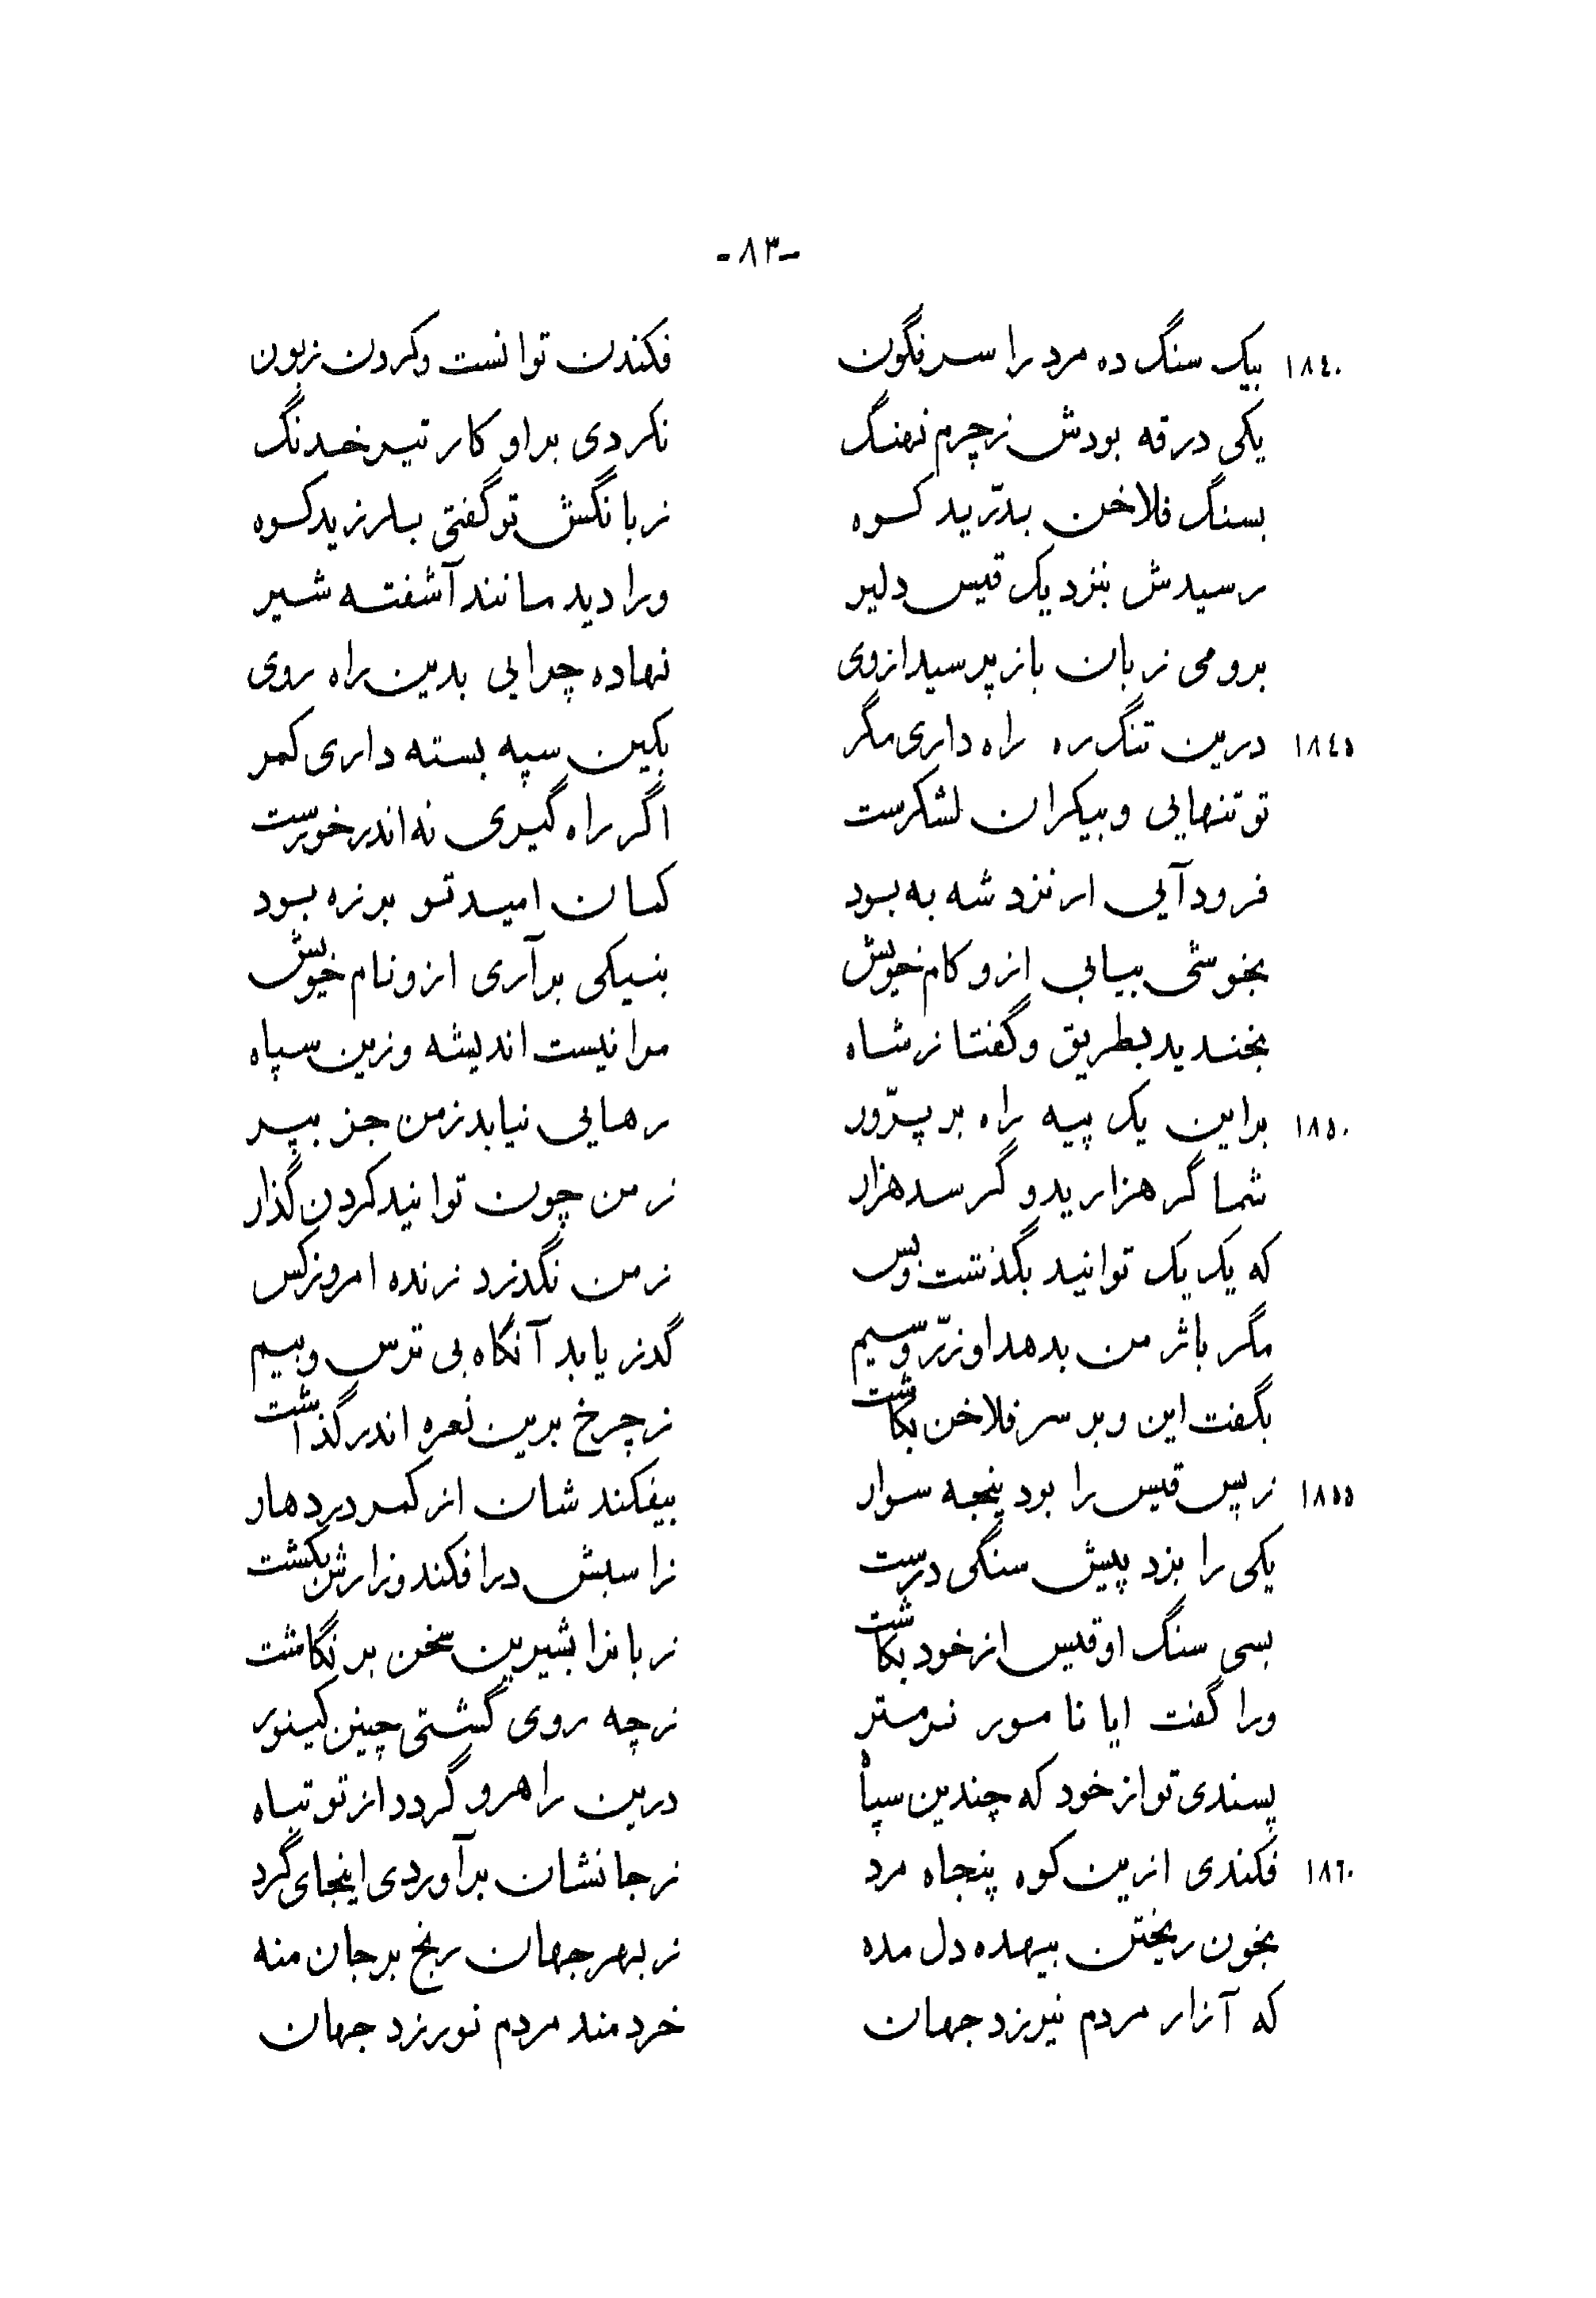 -۸۳-
۱۸٤۰ بیک سنگ ده مرد را سرفگون فکندن توانست وکردن زبون
یکی درقه بودش زچرم نهنگ نکردی براو کار تیرخدنگ
بسنگ فلاخن بدرّید کوه زبانگش توگفتی بلرزید کوه
رسیدش بنزدیک قیس دلیر ورا دید مانند آشفته شیر
برومی زبان بازپرسید ازوی نهاده چرایی بدین راه روی
۱۸٤۵ درین تنگ ره راه داری مگر بکین سپه بسته داری کمر
تو تنهایی و بیکران لشکرست اگر راه گیری نه اندرخورست
فرودآیی ار نزد شه به بود کمان امید تو برزه بود
بخوشی بیابی ازو کام خویش بنیکی برآری ازو نام خویش
بخندید بطریق وگفتا زشاه مرا نیست اندیشه وزین سپاه
۱۸۵۰ براین یک پیه راه بر پرّور رهایی نیابد زمن جز ببر
شما گر هزارید وگر سدهزار زمن چون توانید کردن گذار
که یک یک توانید بگذشت وبس زمن نگذرد زنده امروز کس
مگر باثر من بدهد او زرّ وسیم گذر یابد آنگاه بی ترس وبیم
بگفت این وبر سر فلاخن بکاشت زچرخ برین نعره اندرگذاشت
۱۸۵۵ زپس قیس را بود پنجه سوار بیفکند شان از کمر در دهار
یکی را بزد پیش سنگی درست زاسبش درافکند وزارش بکشت
بسی سنگ او قیس ازخود بکاشت زبانرا بشیرین سخن برنگاشت
ورا گفت ایا نامور نرمستر زچه روی گشتی چنین کینور
پسندی تو ازخود که چندین سپاه درین راهرو گردد ازتو تباه
۱۸٦۰ فکندی ازین کوه پنجاه مرد زجانشان برآوردی اینجای گرد
بخون ریختن بیهده دل مده زبهر جهان رنج برجان منه
که آزار مردم نیرزد جهان خردمند مردم نورزد جهان